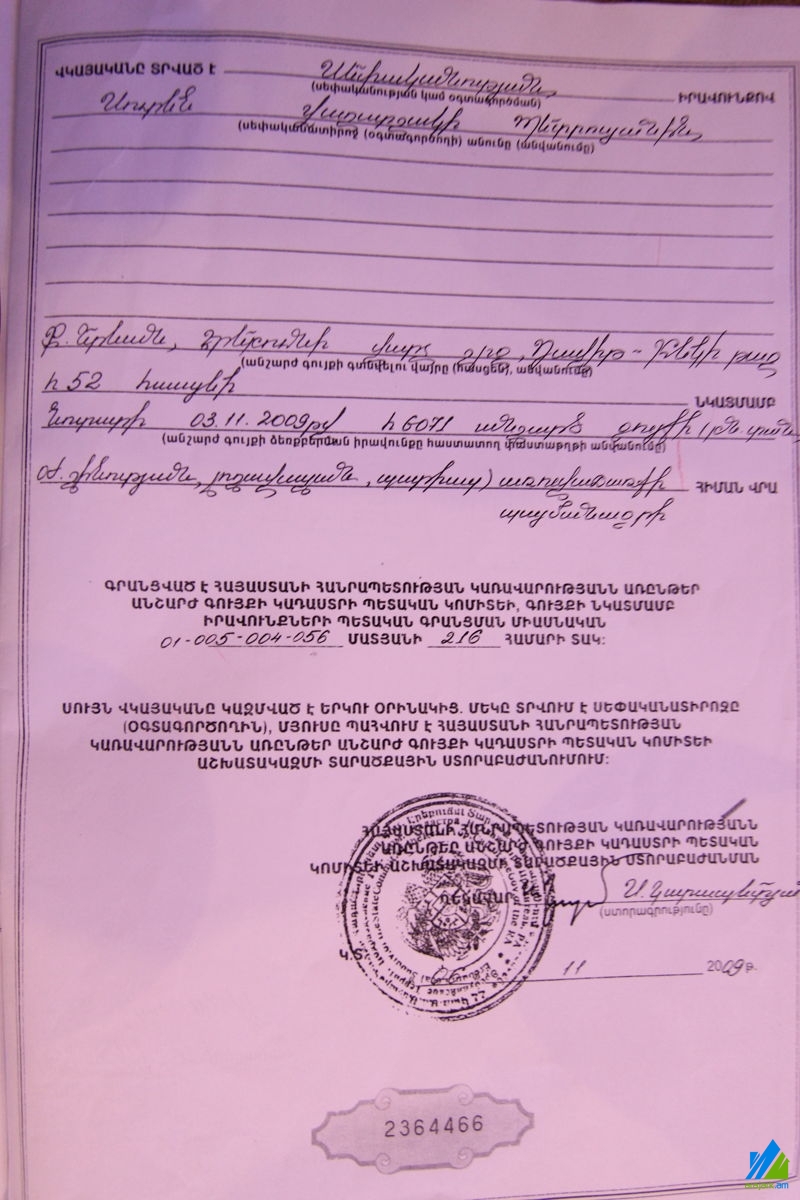 ՎԿԱՅԱԿԱՆԸ ՏՐՎԱԾ Է Սեփականության ԻՐԱՎՈՒՆՔՈՎ
(սեփականության կամ օգտագործման)
Սուրեն Պետրոսյանին
(սեփականատիրոջ (օգտագործողի) անունը (անվանումը)
ք. Երևան, Էրեբունի վարչ. շրջ. Դավիթ-Բեկի թաղ
(անշարժ գույքի գտնվելու վայրը (հասցեն), անվանումը)
հ 52 հասցեի ՆԿԱՏՄԱՄԲ
Նոտարի 03.11.2009թվ հ 6071 անշարժ գույքի
(անշարժ գույքի ձեռքբերման իրավունքը հաստատող փաստաթղթի անվանումը)
առուվաճառքի ՀԻՄԱՆ ՎՐԱ
պայմանագրի
ԳՐԱՆՑՎԱԾ Է ՀԱՅԱՍՏԱՆԻ ՀԱՆՐԱՊԵՏՈՒԹՅԱՆ ԿԱՌԱՎԱՐՈՒԹՅԱՆՆ ԱՌԸՆԹԵՐ
ԱՆՇԱՐԺ ԳՈՒՅՔԻ ԿԱԴԱՍՏՐԻ ՊԵՏԱԿԱՆ ԿՈՄԻՏԵԻ, ԳՈՒՅՔԻ ՆԿԱՏՄԱՄԲ
ԻՐԱՎՈՒՆՔՆԵՐԻ ՊԵՏԱԿԱՆ ԳՐԱՆՑՄԱՆ ՄԻԱՍՆԱԿԱՆ
01-005-004-056 ՄԱՏՅԱՆԻ 216 ՀԱՄԱՐԻ ՏԱԿ:
ՍՈՒՅՆ ՎԿԱՅԱԿԱՆԸ ԿԱԶՄՎԱԾ Է ԵՐԿՈՒ ՕՐԻՆԱԿԻՑ. ՄԵԿԸ ՏՐՎՈՒՄ Է ՍԵՓԱԿԱՆԱՏԻՐՈՋԸ
(ՕԳՏԱԳՈՐԾՈՂԻՆ), ՄՅՈՒՍԸ ՊԱՀՎՈՒՄ Է ՀԱՅԱՍՏԱՆԻ ՀԱՆՐԱՊԵՏՈՒԹՅԱՆ
ԿԱՌԱՎԱՐՈՒԹՅԱՆՆ ԱՌԸՆԹԵՐ ԱՆՇԱՐԺ ԳՈՒՅՔԻ ԿԱԴԱՍՏՐԻ ՊԵՏԱԿԱՆ ԿՈՄԻՏԵԻ
ԱՇԽԱՏԱԿԱԶՄԻ ՏԱՐԱԾՔԱՅԻՆ ՍՏՈՐԱԲԱԺԱՆՈՒՄՈՒՄ:
ՀԱՅԱՍՏԱՆԻ ՀԱՆՐԱՊԵՏՈՒԹՅԱՆ ԿԱՌԱՎԱՐՈՒԹՅԱՆՆ
ԱՌԸՆԹԵՐ ԱՆՇԱՐԺ ԳՈՒՅՔԻ ԿԱԴԱՍՏՐԻ ՊԵՏԱԿԱՆ
ԿՈՄԻՏԵԻ ԱՇԽԱՏԱԿԱԶՄԻ ՏԱՐԱԾՔԱՅԻՆ ՍՏՈՐԱԲԱԺԱՆՄԱՆ
ՂԵԿԱՎԱՐ
(ստորագրությունը)
Կ.Տ.
11 2009 թ.
2364466